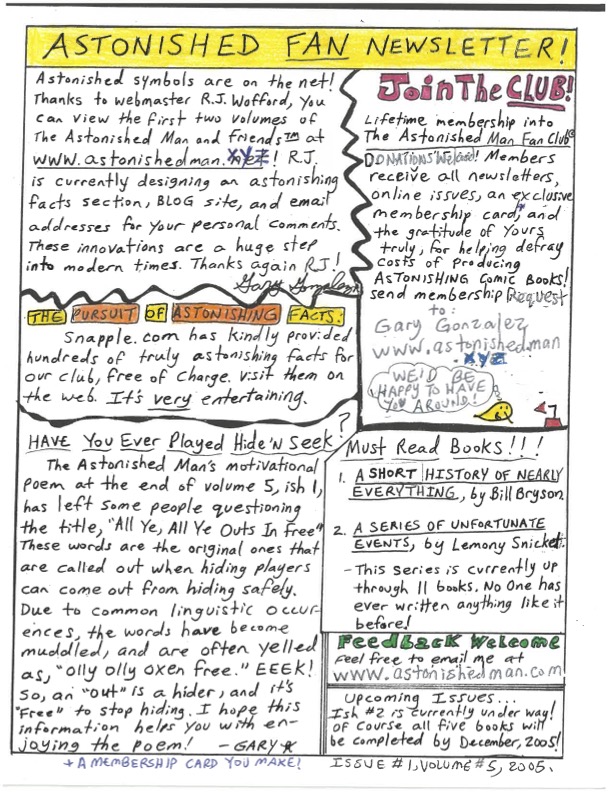 ASTONISHED FAN NEWSLETTER!
Astonished symbols are on the net!
Thanks to webmaster R.J. Wofford, You
can view the first two volumes of
The Astonished Man and friends™ at
www.astonishedman.XYZ! R.J.
is currently designing an astonishing
facts section, BLOG site, and email
addresses for your personal comments.
These innovations are a huge step
into modern times. Thanks again RJ!
Gary Gonzalez
THE PURSUIT OF ASTONISHING FACTS:
Snapple.com has kindly provided
hundreds of truly astonishing facts for
our club, free of charge. Visit them on
the web. It's very entertaining.
HAVE YOU EVER PLAYED HIDE 'N SEEK?
The Astonished Man's motivational
poem at the end of volume 5, ish 1,
has left some people questioning
the title, "All Ye, All Ye Outs In Free"
These words are the original ones that
are called out when hiding players
can come out from hiding safely.
Due to common linguistic occur-
ences, the words have become
muddled, and are often yelled
as, "olly olly oxen free." EEEK!
So, an "out" is a hider, and it's
"Free" to stop hiding. I hope this
information helps you with en-
joying the poem! -GARY☆
Join The CLUB!
Lifetime membership into
The Astonished Man Fan Club
DONATIONS Welcomed! Members
receive all newsletters,
online issues, an exclusive
membership card,+ and
the gratitude of yours
truly, for helping defray
costs of producing
ASTONISHING COMIC BOOKS!
send membership Request
to:
Gary Gonzalez
www.astonishedman
.XYZ
WE'D BE
HAPPY TO HAVE
YOU AROUND!
Must Read Books!!!
1. A SHORT HISTORY OF NEARLY
EVERYTHING, by Bill Bryson
2. A SERIES OF UNFORTUNATE
EVENTS, by Lemony Snicket.
- This series is currently up
through 11 books. No One has
ever written anything like it
before!
Feedback Welcome
Feel free to email me at
www.astonishedman.com
Upcoming Issues...
Ish #2 is currently under way!
Of course all five books will
be completed by December, 2005!
+ A MEMBERSHIP CARD YOU MAKE!
ISSUE #1, VOLUME #5, 2005.